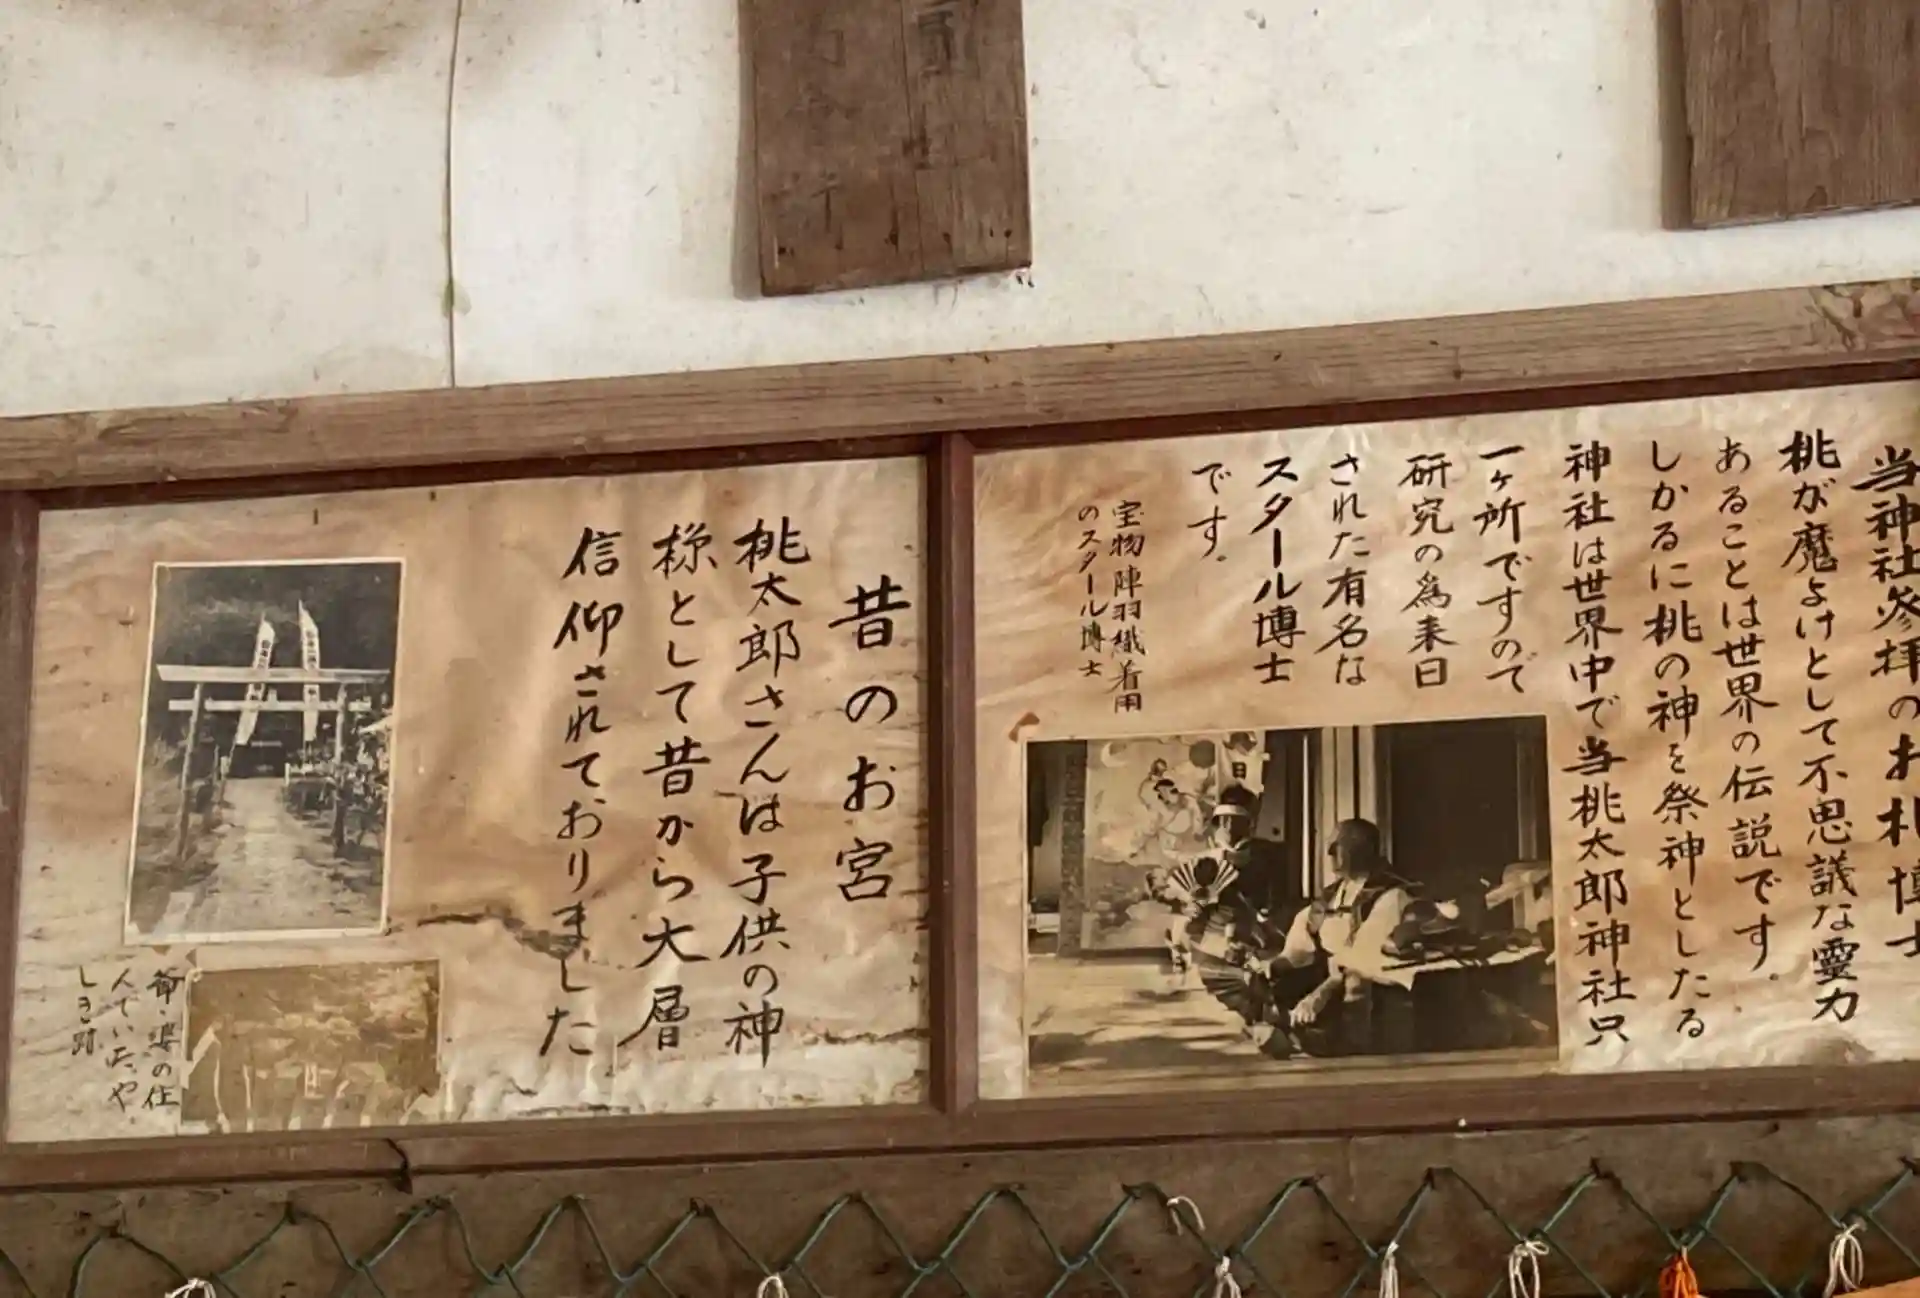 当神社参拝のお札博士
桃が魔よけとして不思議な霊力
あることは世界の伝説です。
しかるに桃の神を祭神としたる
神社は世界中で当桃太郎神社只
一ヶ所ですので
研究の為来日
された有名な
スタール博士
です。
宝物陣羽織着用
のスタール博士
昔のお宮
桃太郎さんは子供の神
様として昔から大層
信仰されておりました
爺・婆の住
んでいた。や
しき跡